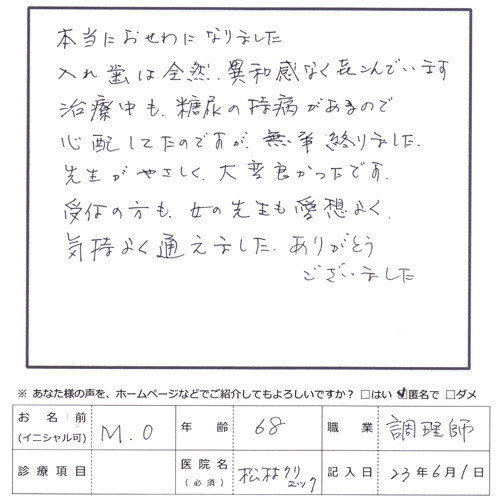 本当におせわになりました
入れ歯は全然、異和感なく喜こんでいます
治療中も、糖尿の持病があるので
心配してたのですが、無事終りました。
先生がやさしく、大変良かったです。
受付の方も、女の先生も愛想よく、
気持よく通えました。ありがとう
ございました
※ あなた様の声を、ホームページなどでご紹介してもよろしいですか？ □はい ☑匿名で □ダメ
お名前 (イニシャル可) M.O 年齢 68 職業 調理師
診療項目 医院名 (必須) 松村クリニック 記入日 23年6月1日